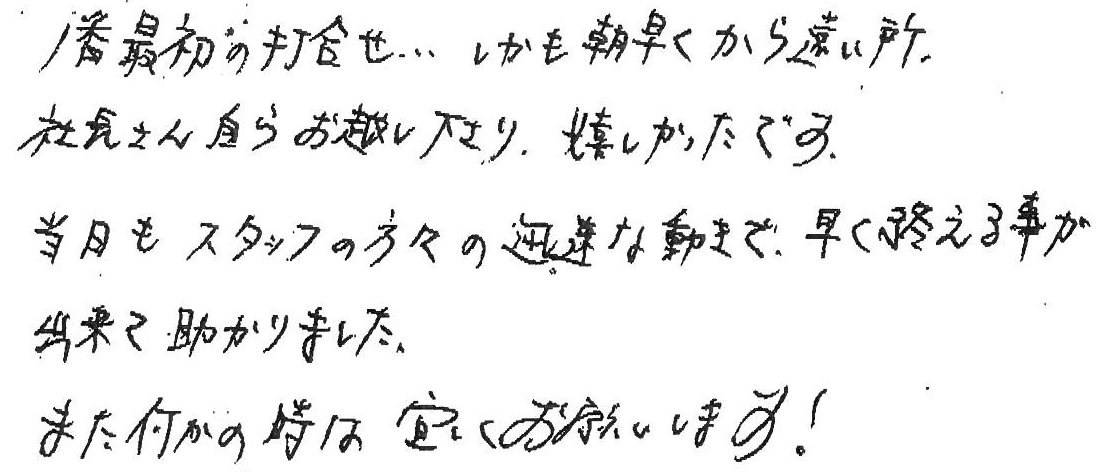 1番最初の打合せ… しかも朝早くから遠い所、
社長さん自らお越し下さり、嬉しかったです。
当日もスタッフの方々の迅速な動きで、早く終える事が
出来て助かりました。
また何かの時は宜しくお願いします!